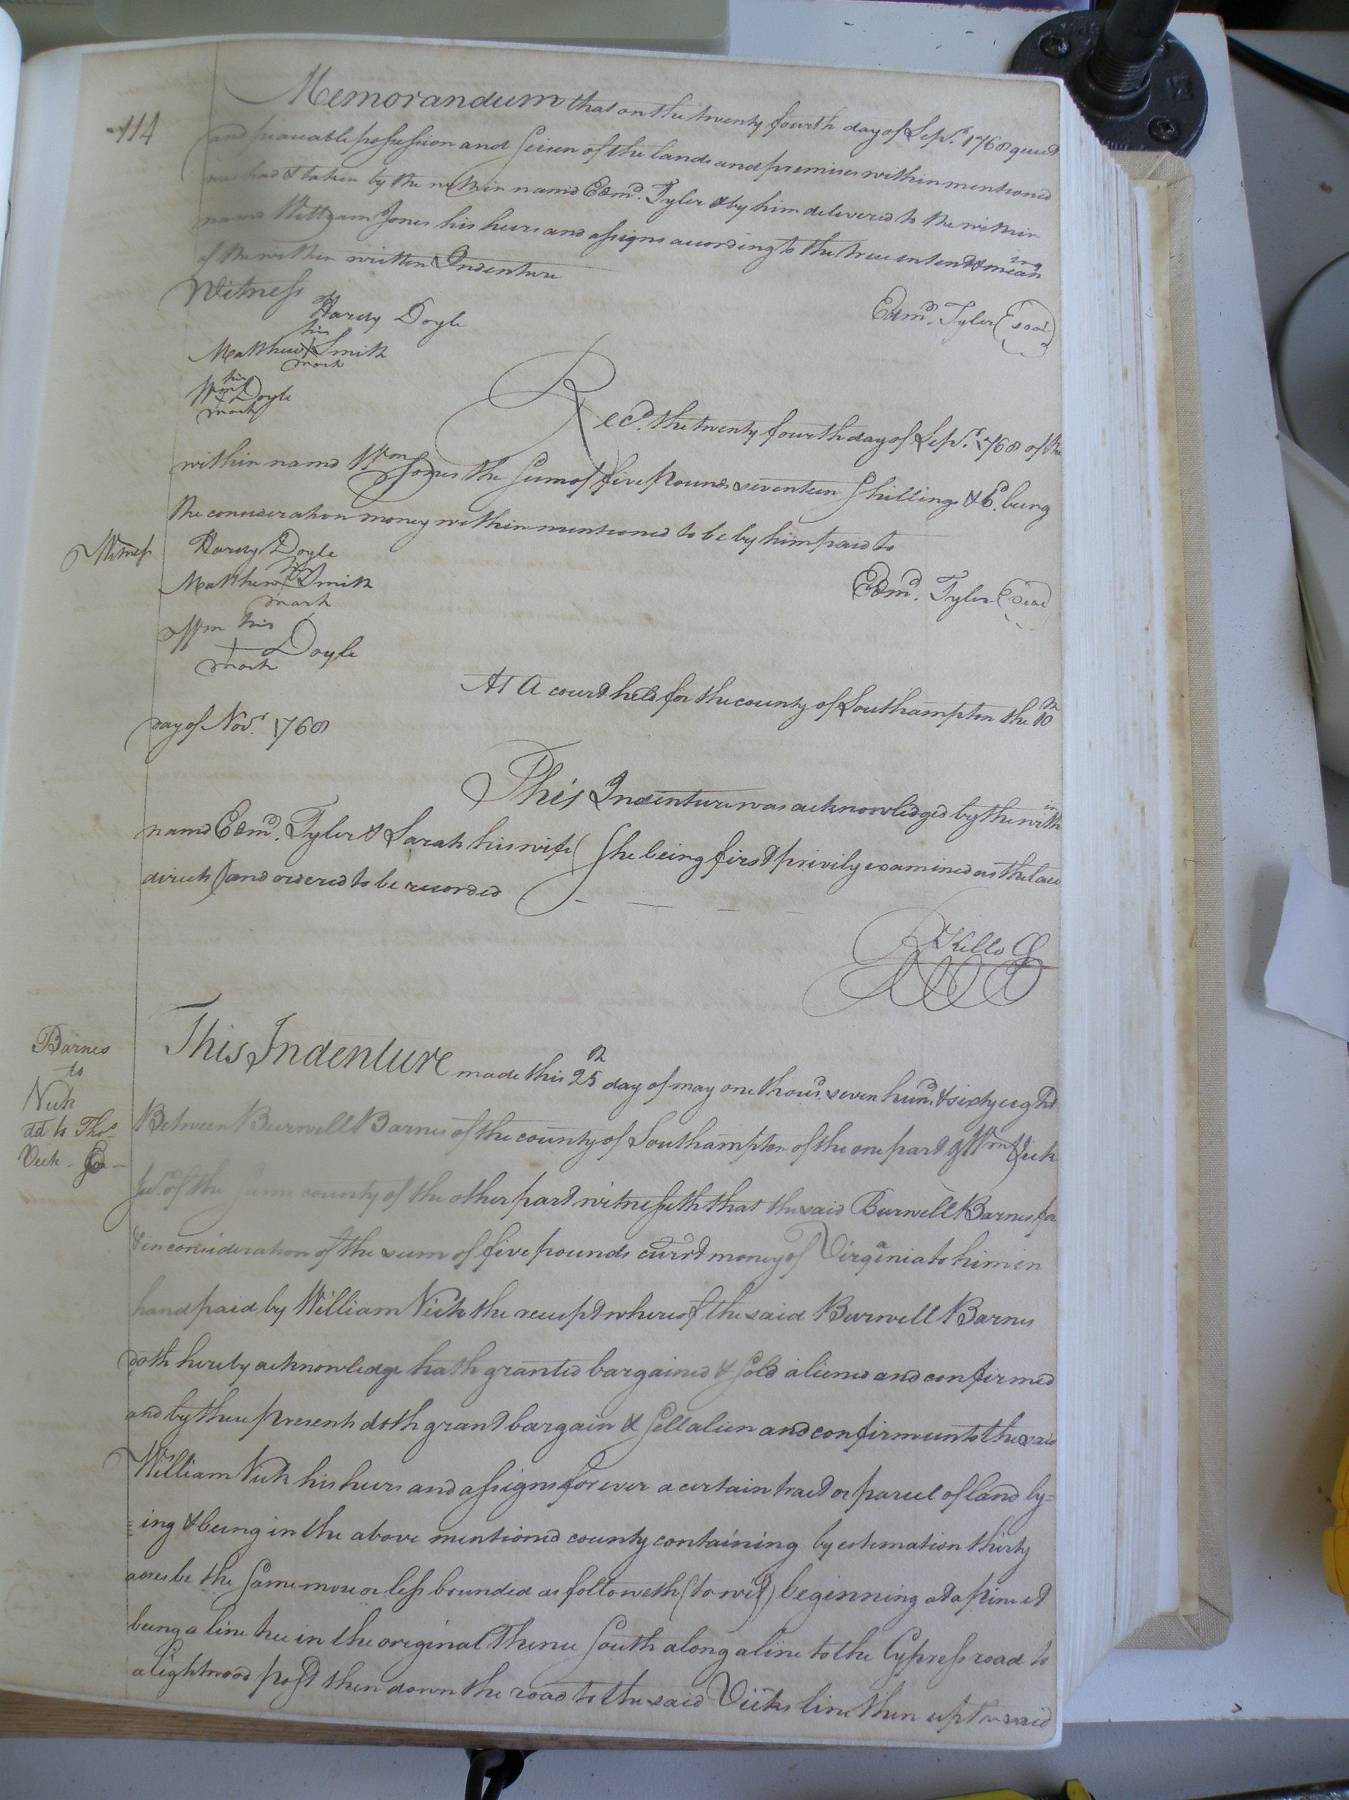 114
Memorandum that on the twenty fourth day of Sepr. 1768 quiet
and peaceable possession and Seisen of the lands and premises within mentioned
was had & taken by the within namd Edmd. Tyler & by him delivered to the within
namd William Jones his heirs and assigns according to the true intent & meaning
of the within written Indenture
Witness
Hardy Doyle
Edmd. Tyler (seal)
his
Matthew Smith
mark
his
Wm Doyle
mark
Recd. the twenty fourth day of Sepr. 1768 of the
within namd Wm Jones the Sum of five Pounds seventeen Shillings & 6d. being
the consideration money within mentioned to be by him paid to
Witness
Hardy Doyle
Matthew Smith
mark
Edmd. Tyler (seal)
Wm his
+ Doyle
mark
At A court held for the county of Southampton the 10th
day of Novr. 1768
This Indenture was acknowledged by the within
namd Edmd. Tyler & Sarah his wife (She being first privily examined as the law
directs) and ordered to be recorded
R Kello
Barnes
to
Vick
dd to Thos.
Vick
This Indenture made this 25th day of may one thousd. seven hund. & sixty eight
Between Burwell Barnes of the county of Southampton of the one part & Wm Vick
Jur. of the Same county of the other part witnesseth that the said Burwell Barnes for
& in consideration of the sum of five pounds currt money of Virginia to him in
hand paid by William Vick the receipt whereof the said Burwell Barnes
doth hereby acknowledge hath granted bargained & Sold aliened and confirmed
and by these presents doth grant bargain & Sell alien and confirm unto the said
William Vick his heirs and assigns forever a certain tract or parcel of land ly=
=ing & being in the above mentioned county containing by estemation thirty
acres be the Same more or less bounded as followeth (to wit) beginning at a pine it
being a line tree in the original Thence South along a line to the Cypress road to
a lightwood post then down the road to the said Vicks line then up the said